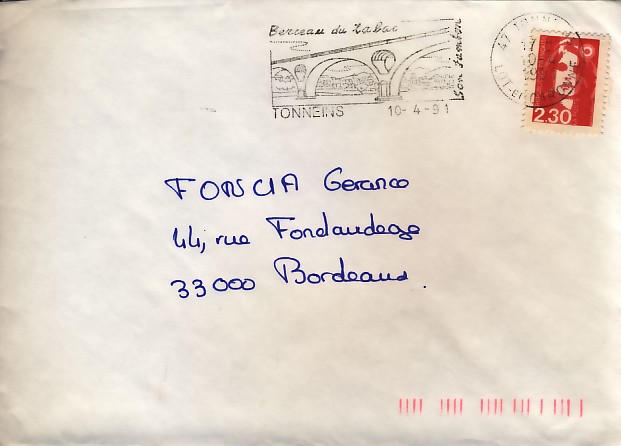 Berceau du tabac
son jambon
TONNEINS 10-4-91
47 TONNEINS
LOT-ET-GARONNE
2.30
FONCIA Gerance
44, rue Fondaudege
33000 Bordeaux.